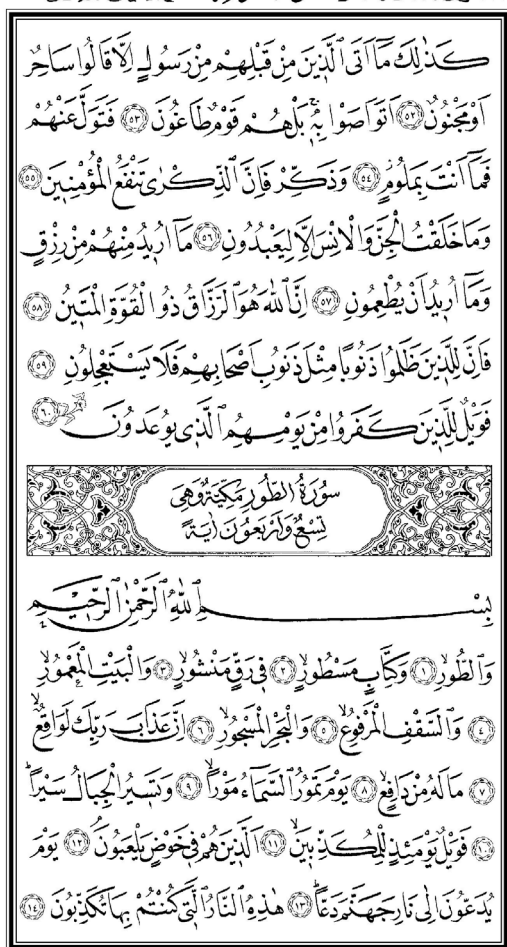 كَذٰلِكَ مَٓا اَتَى الَّذ۪ينَ مِنْ قَبْلِهِمْ مِنْ رَسُولٍ اِلَّا قَالُوا سَاحِرٌ
اَوْ مَجْنُونٌ ﴿٥٢﴾ اَتَوَاصَوْا بِه۪ۚ بَلْ هُمْ قَوْمٌ طَاغُونَ ﴿٥٣﴾ فَتَوَلَّ عَنْهُمْ
فَمَٓا اَنْتَ بِمَلُومٍ ﴿٥٤﴾ وَذَكِّرْ فَاِنَّ الذِّكْرٰى تَنْفَعُ الْمُؤْمِن۪ينَ ﴿٥٥﴾
وَمَا خَلَقْتُ الْجِنَّ وَالْاِنْسَ اِلَّا لِيَعْبُدُونِ ﴿٥٦﴾ مَٓا اُر۪يدُ مِنْهُمْ مِنْ رِزْقٍ
وَمَٓا اُر۪يدُ اَنْ يُطْعِمُونِ ﴿٥٧﴾ اِنَّ اللّٰهَ هُوَ الرَّزَّاقُ ذُو الْقُوَّةِ الْمَت۪ينُ ﴿٥٨﴾
فَاِنَّ لِلَّذ۪ينَ ظَلَمُوا ذَنُوبًا مِثْلَ ذَنُوبِ اَصْحَابِهِمْ فَلَا يَسْتَعْجِلُونِ ﴿٥٩﴾
فَوَيْلٌ لِلَّذ۪ينَ كَفَرُوا مِنْ يَوْمِهِمُ الَّذ۪ي يُوعَدُونَ ﴿٦٠﴾
سُورَةُ الطُّورِ مَكِّيَّةٌ وَهِيَ
تِسْعٌ وَاَرْبَعُونَ اٰيَةً
بِسْمِ اللّٰهِ الرَّحْمٰنِ الرَّح۪يمِ
وَالطُّورِۙ ﴿١﴾ وَكِتَابٍ مَسْطُورٍۙ ﴿٢﴾ ف۪ي رَقٍّ مَنْشُورٍۙ ﴿٣﴾ وَالْبَيْتِ الْمَعْمُورِۙ
﴿٤﴾ وَالسَّقْفِ الْمَرْفُوعِۙ ﴿٥﴾ وَالْبَحْرِ الْمَسْجُورِۙ ﴿٦﴾ اِنَّ عَذَابَ رَبِّكَ لَوَاقِعٌۙ
﴿٧﴾ مَا لَهُ مِنْ دَافِعٍۙ ﴿٨﴾ يَوْمَ تَمُورُ السَّمَٓاءُ مَوْرًاۙ ﴿٩﴾ وَتَس۪يرُ الْجِبَالُ سَيْرًاۜ
﴿١٠﴾ فَوَيْلٌ يَوْمَئِذٍ لِلْمُكَذِّب۪ينَۙ ﴿١١﴾ اَلَّذ۪ينَ هُمْ ف۪ي خَوْضٍ يَلْعَبُونَۘ ﴿١٢﴾ يَوْمَ
يُدَعُّونَ اِلٰى نَارِ جَهَنَّمَ دَعًّاۜ ﴿١٣﴾ هٰذِهِ النَّارُ الَّت۪ي كُنْتُمْ بِهَا تُكَذِّبُونَ ﴿١٤﴾